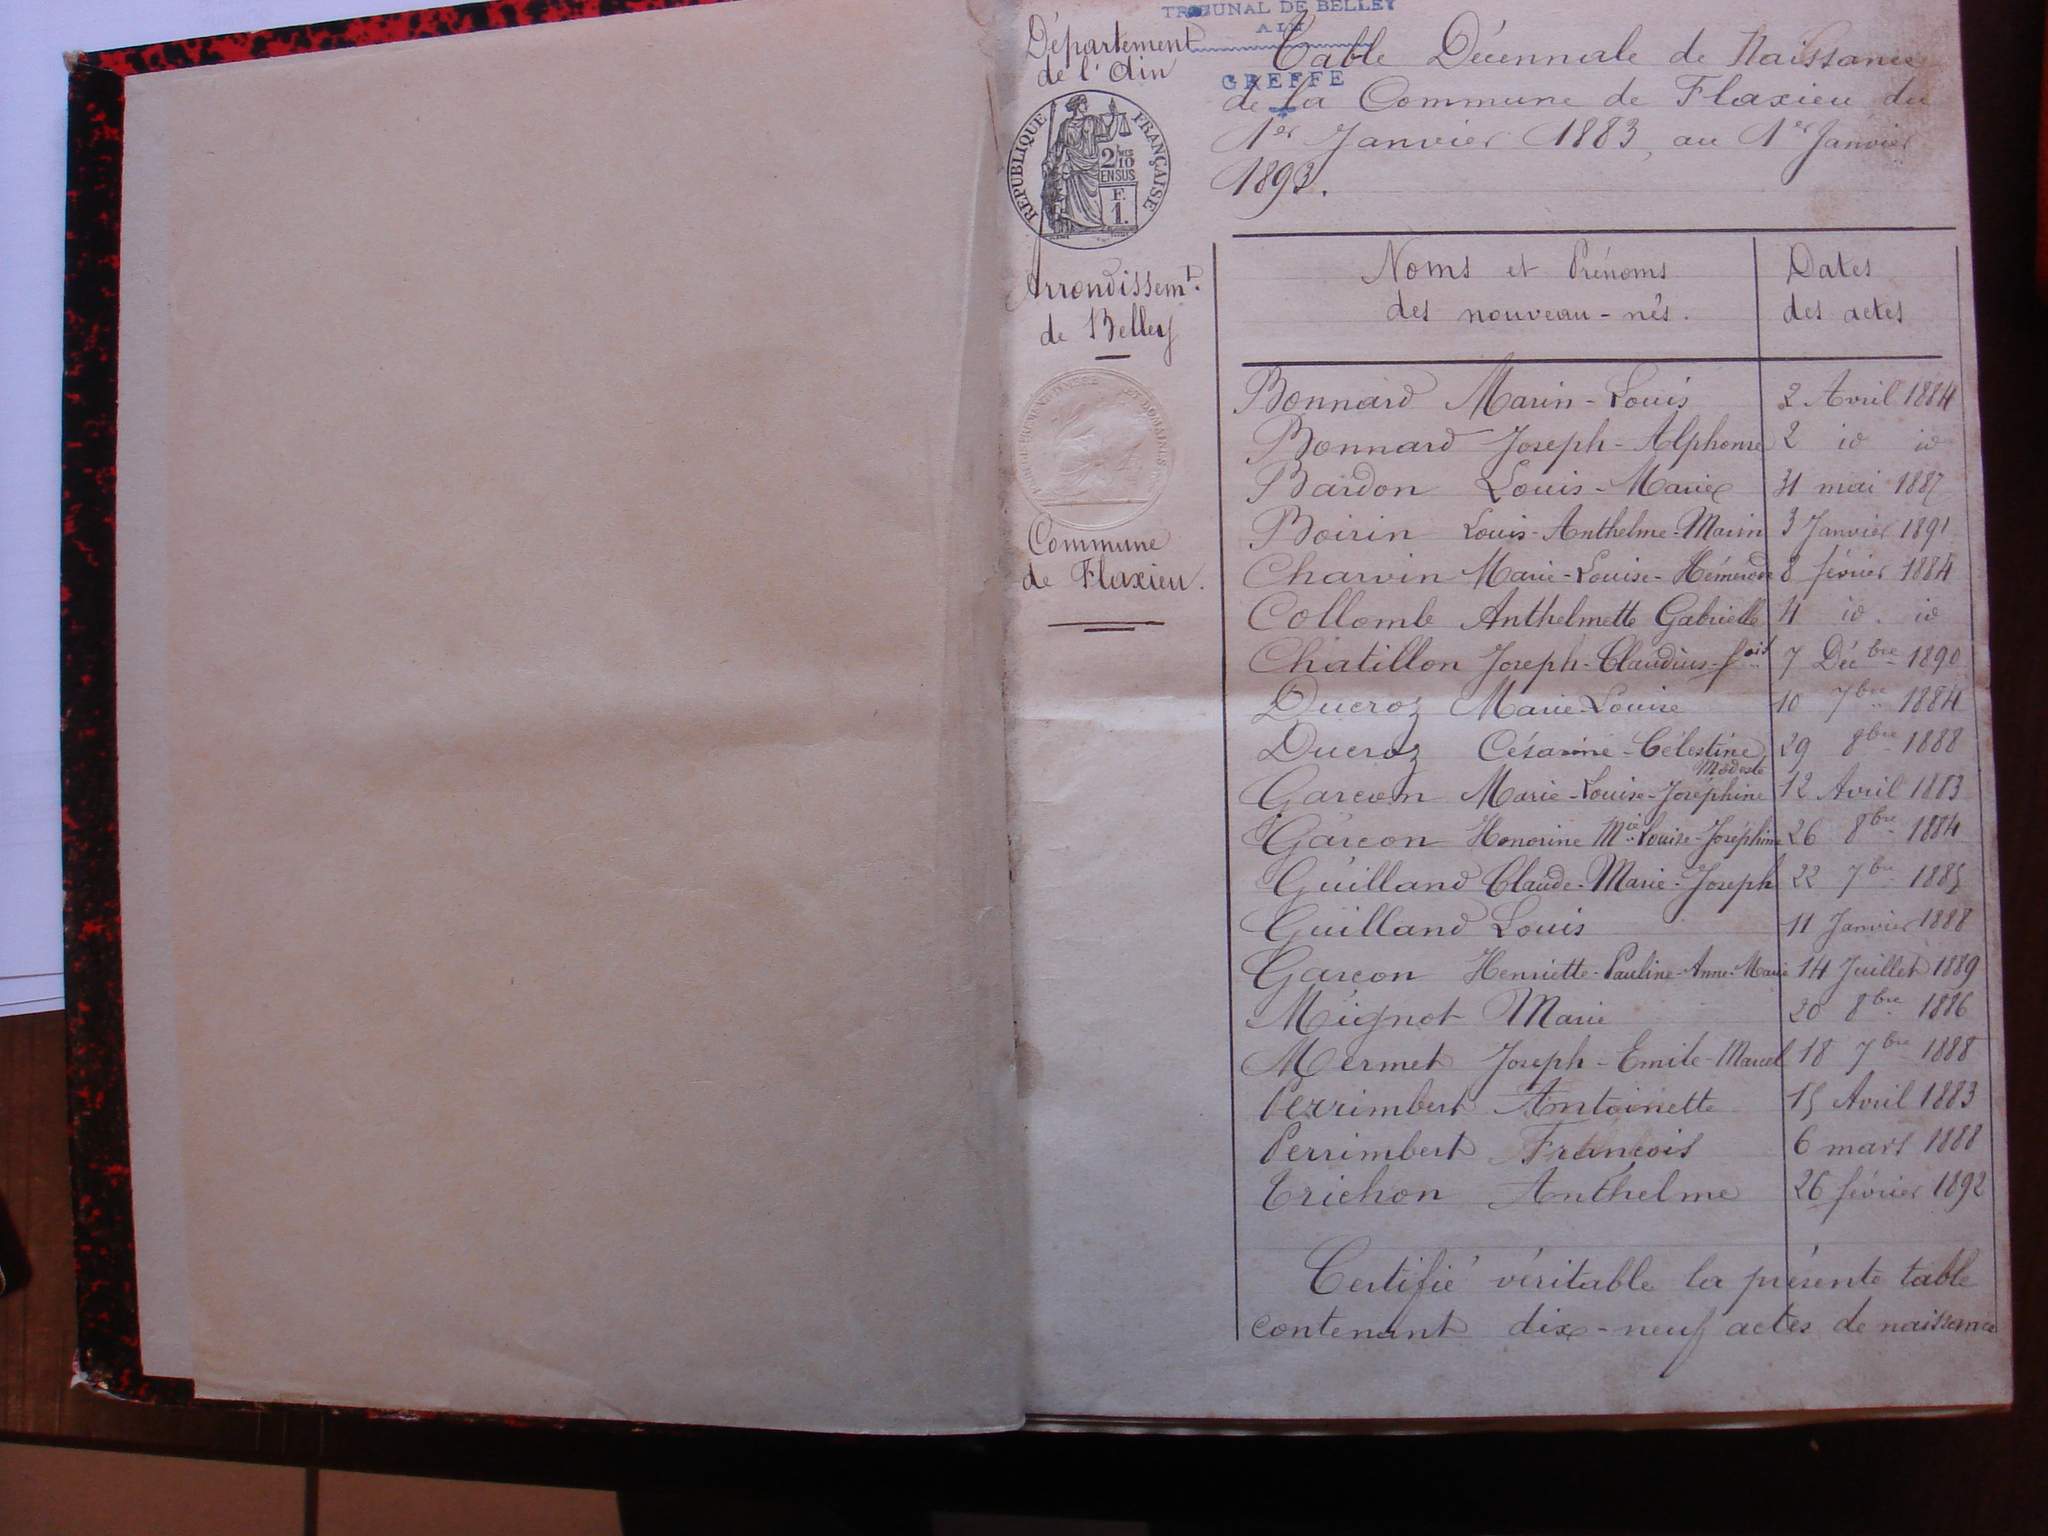 TRIBUNAL DE BELLEY
AIN
GREFFE
Département
de l'Ain
REPUBLIQUE FRANÇAISE
2/10
EN SUS
F.
1.
Arrondissemt.
de Belley
ET DOMAINES
Commune
de Flaxieu.
Table Décennale de Naissances
de la Commune de Flaxieu du
1er Janvier 1883, au 1er Janvier
1893.
Noms et Prénoms Dates
des nouveau-nés. des actes
Bonnard Marin-Louis 2 Avril 1884
Bonnard Joseph-Alphonse 2 id id
Bardon Louis-Marie 31 mai 1887
Boirin Louis-Anthelme-Marin 3 Janvier 1891
Charvin Marie-Louise- 8 février 1884
Collomb Anthelmette Gabrielle 4 id. id
Chatillon Joseph-Claudius-fois 7 Décbre 1890
Ducroz Marie-Louise 10 7bre 1884
Ducroz Césarine-Célestine 29 8bre 1888
Modeste
Garcon Marie-Louise-Joséphine 12 Avril 1883
Garcon Honorine Mie Louise-Joséphine 26 8bre 1884
Guilland Claude-Marie-Joseph 22 7bre 1885
Guilland Louis 11 Janvier 1888
Garcon Henriette-Pauline-Anne-Marie 14 Juillet 1889
Mignot Marie 20 8bre 1886
Mermet Joseph-Emile-Marcel 18 7bre 1888
Perrimbert Antoinette 15 Avril 1883
Perrimbert François 6 mars 1888
Trichon Anthelme 26 février 1892
Certifié véritable la présente table
contenant dix-neuf actes de naissance